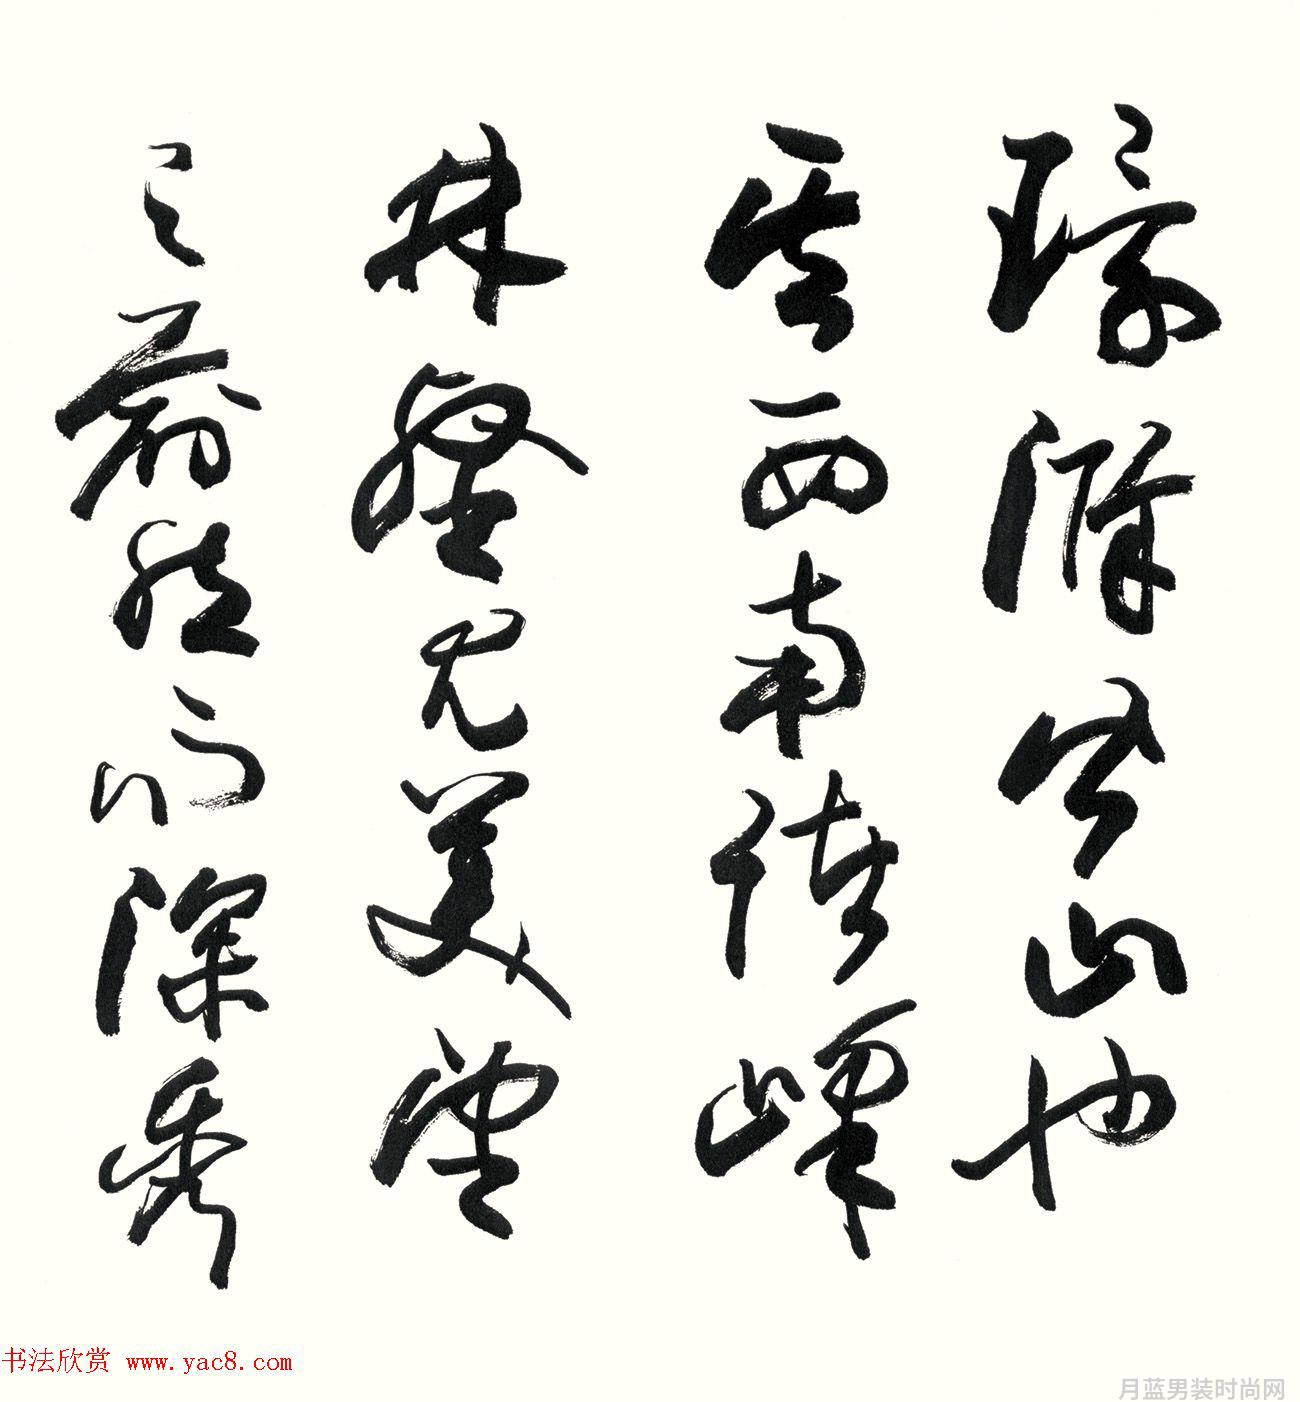 環滁皆山也
其西南諸峰
林壑尤美望
之蔚然而深秀
书法欣赏 www.yac8.com
月蓝男装时尚网